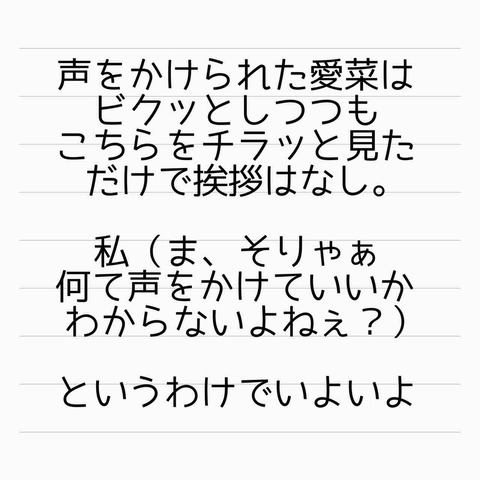 声をかけられた愛菜は
ビクッとしつつも
こちらをチラッと見た
だけで挨拶はなし。
私（ま、そりゃぁ
何て声をかけていいか
わからないよねぇ？）
というわけでいよいよ